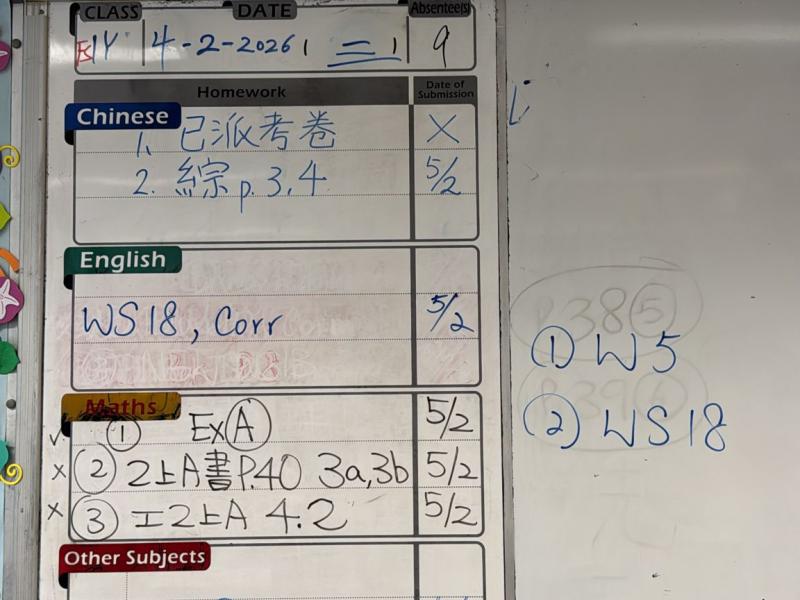 CLASS DATE Absentee(s)
4-2-2026 二 9
Homework Date of Submission
Chinese
1. 已派考卷 X
2. 綜 p. 3,4 5/2
English
WS18, Corr 5/2
Maths
✓ ① Ex Ⓐ 5/2
x ② 2上A書P.40 3a,3b 5/2
x ③ 工2上A 4.2 5/2
Other Subjects
① W5
② WS18